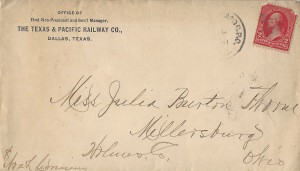 OFFICE OF
First Vice-President and Gen'l Manager.
THE TEXAS & PACIFIC RAILWAY CO.,
DALLAS, TEXAS.
Miss Julia Burton Thorne
Millersburg
Holmes Co. Ohio